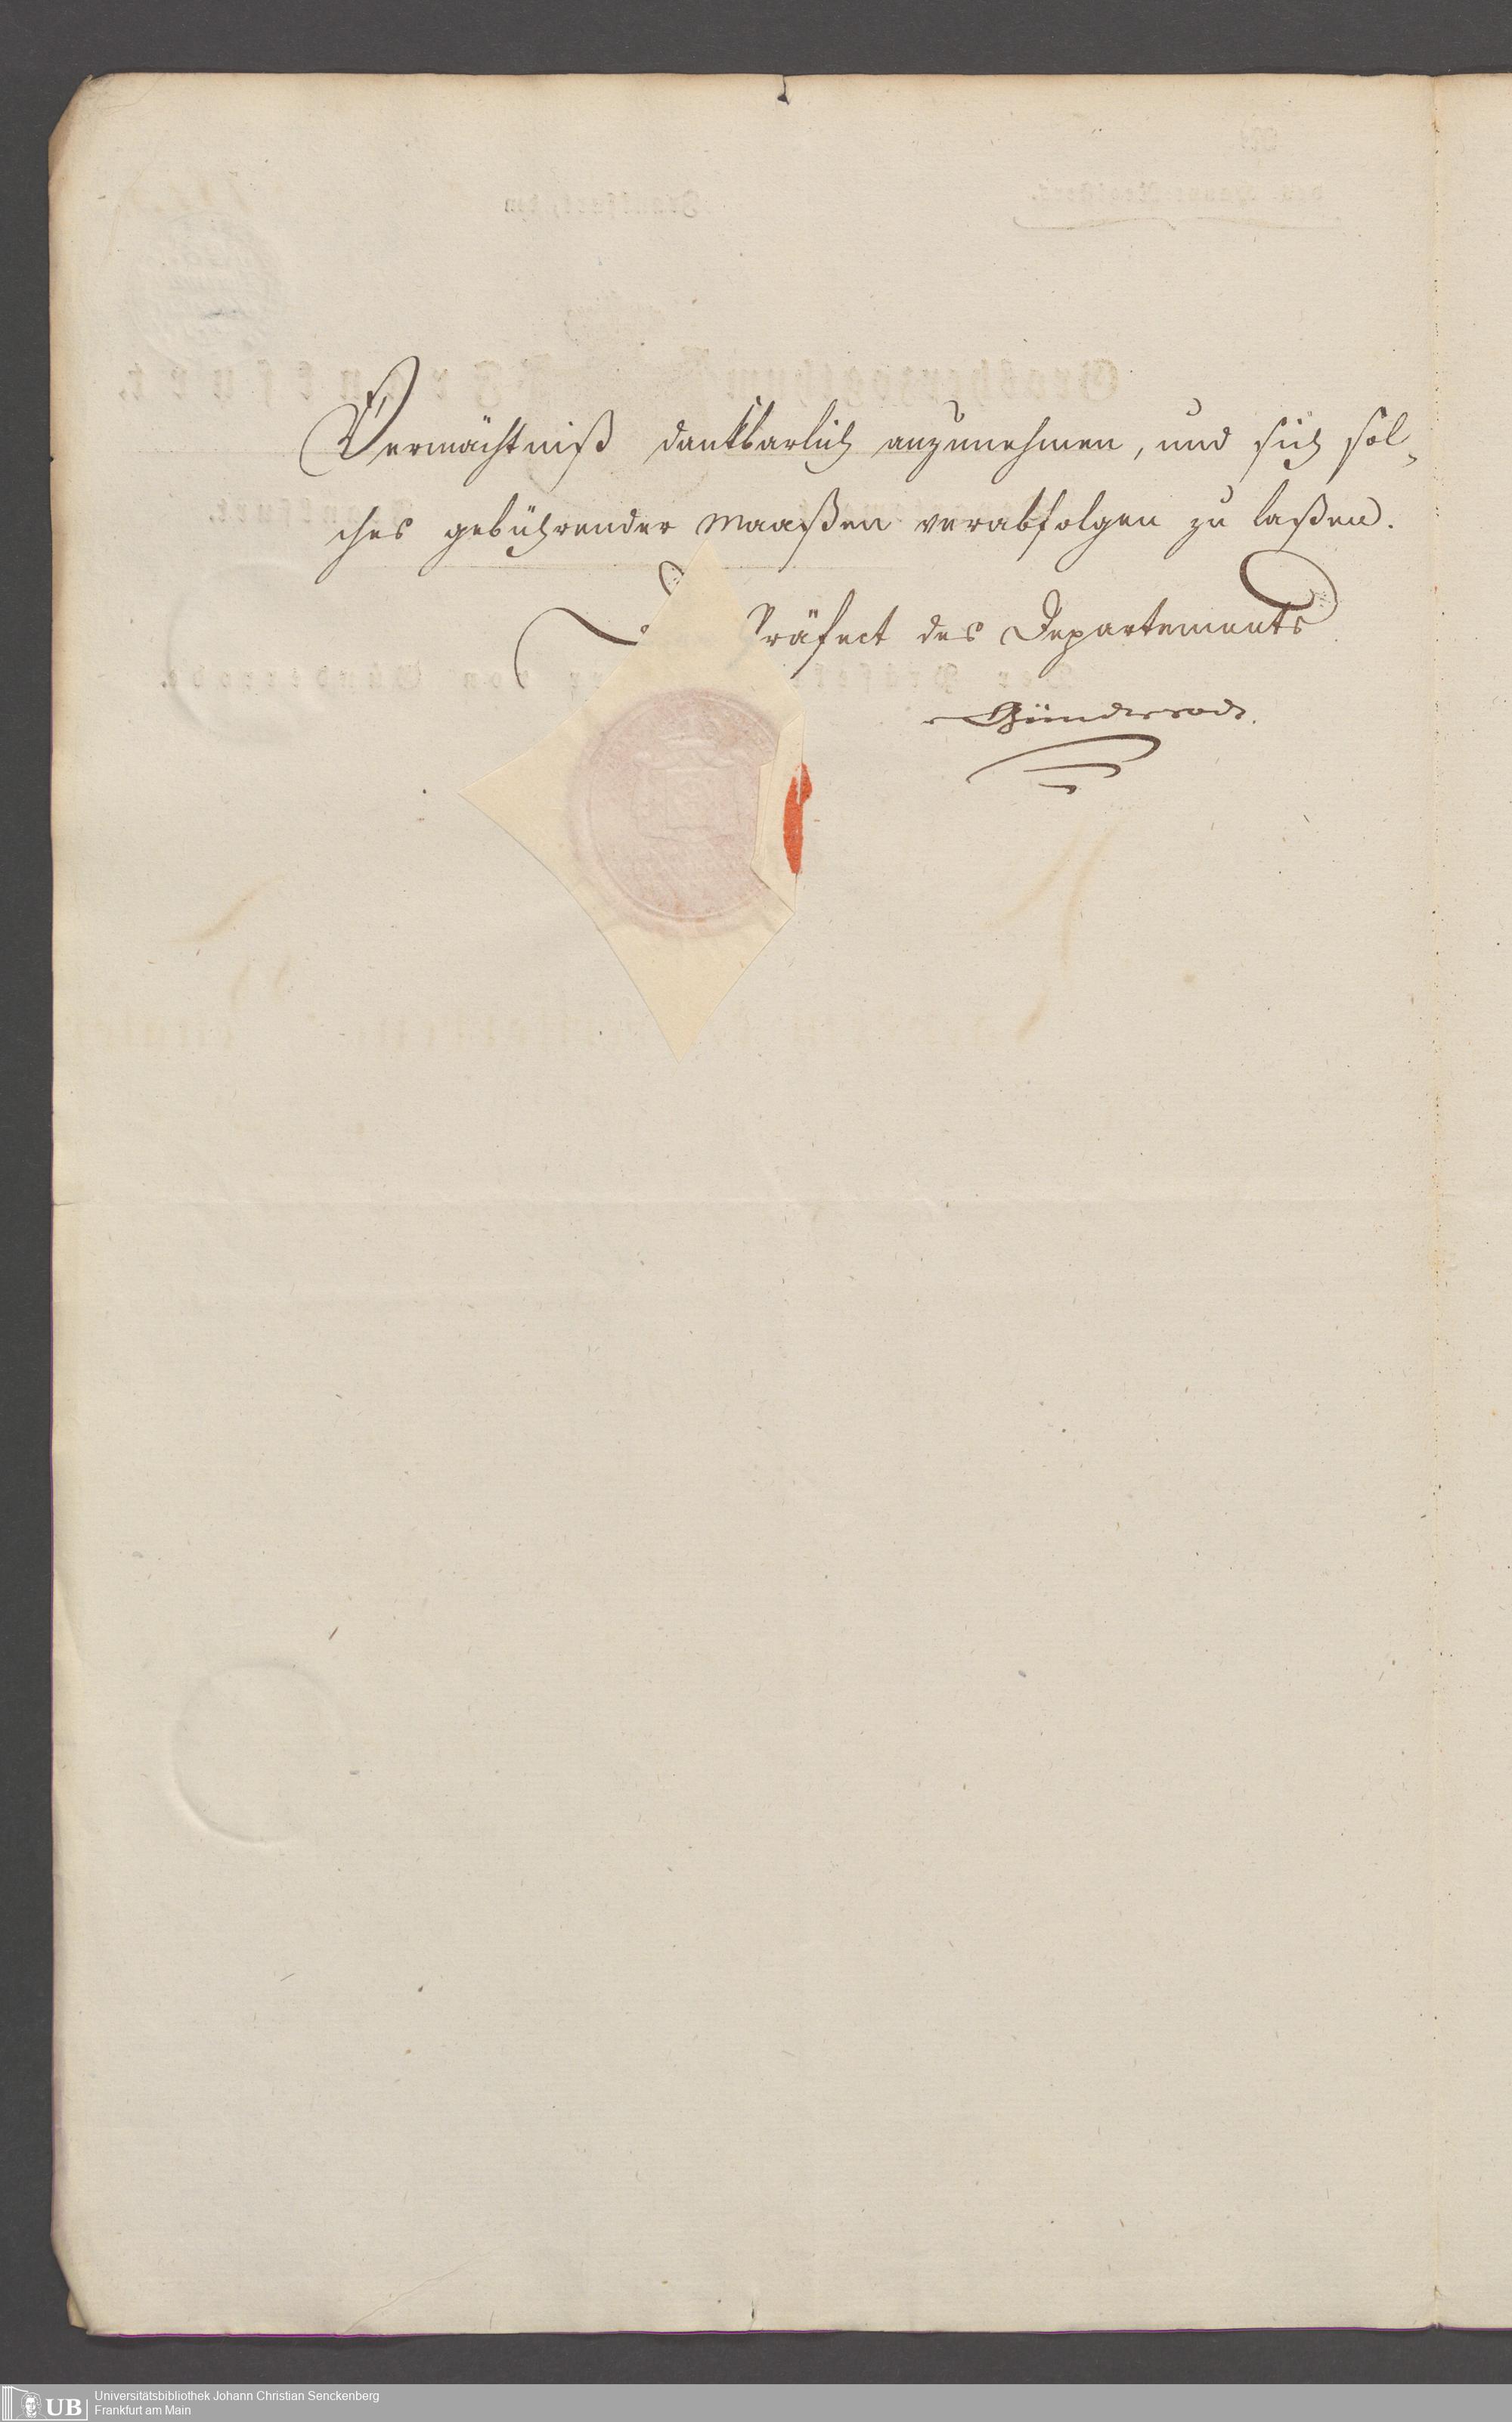 Vermächtniß dankbarlich anzunehmen, und sich sol-
ches gebührender Maaßen verabfolgen zu laßen.
Präfect des Departements
Günderrode.
UB
Universitätsbibliothek Johann Christian Senckenberg
Frankfurt am Main